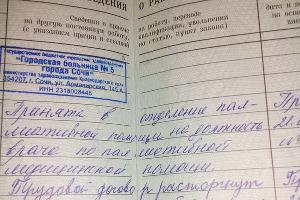 ВЕДЕНИЯ
О РА
Сведения о приеме
на другую постоянную работу,
(с указанием причин и ссылкой
на работу, переводе
квалификации, увольнении
на статью, пункт закона)
дата и
Государственное бюджетное учреждение здравоохранения
"Городская больница № 5
города Сочи"
министерства здравоохранения Краснодарского края
354207, г. Сочи, ул. Армавирская, 145
ИНН 2318008445
Принята в отделение пал-
лиативной помощи на должность
врача по паллиативной
медицинской помощи.
Трудовой договор расторгнут